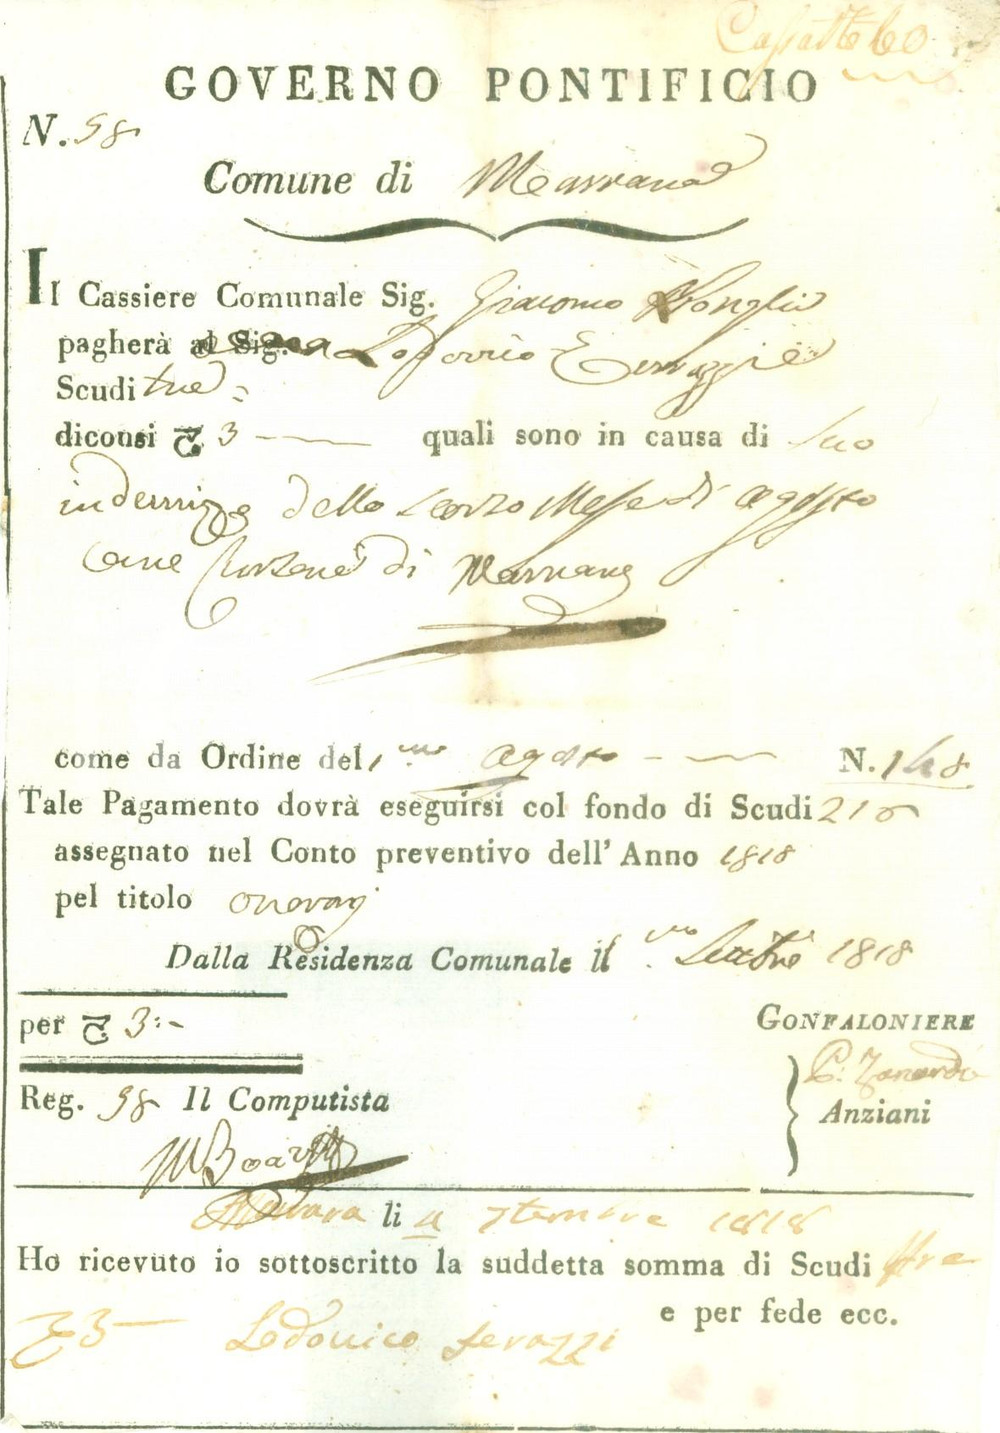 GOVERNO PONTIFICIO
N. 98
Comune di Marrana
Il Cassiere Comunale Sig. Giacomo
pagherà al Sig. Lodovico
Scudi tre
diconsi 3 quali sono in causa di suo
dello scorso Mese di agosto
di Marrana
come da Ordine del 1.mo agosto N. 148
Tale Pagamento dovrà eseguirsi col fondo di Scudi 216
assegnato nel Conto preventivo dell' Anno 1818
pel titolo
Dalla Residenza Comunale il Settbre 1818
per 3:-
GONFALONIERE
Reg. 98 Il Computista
Anziani
li 11 7tembre 1818
Ho ricevuto io sottoscritto la suddetta somma di Scudi tre
e per fede ecc.
3 Lodovico Ferazzi